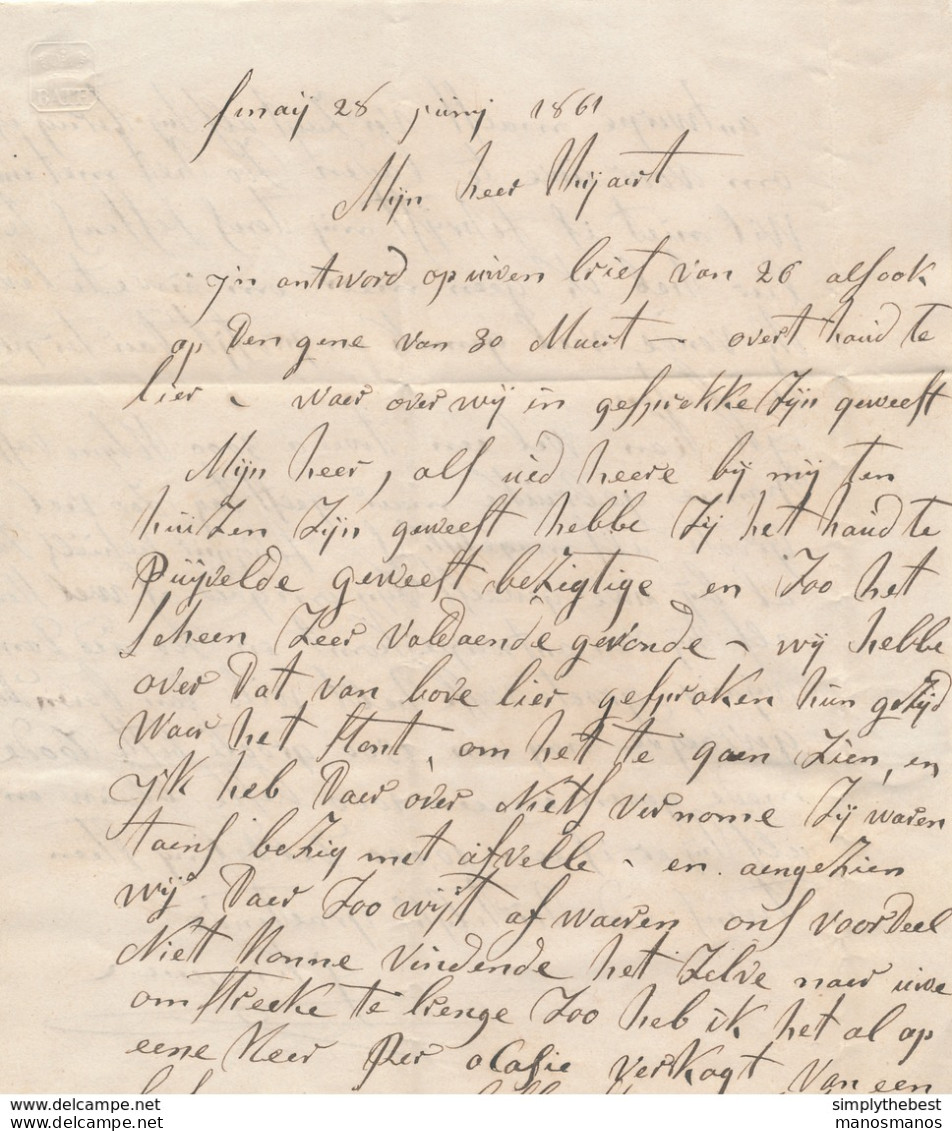 Smaij 28 junij 1861
Mijn heer Thijaert
Jn antword op uwen brief van 26 alsook
op Den gene van 30 Maert – overt haud te
lier – waer over wij in gesprekke Zijn geweest
Mijn heer, als ued heere bij mij ten
huiZen Zijn geweest hebbe Zij het haud te
Puijvelde geweest beZigtige en Zoo het
scheen Zeer voldaende gevonde – wij hebbe
over Dat van bove lier gesproken hun geZijd
Waer het stont, om het te gaen Zien, en
yk heb Daer over Niets vernome Zij waren
taens beZig met afvelle – en aengeZien
wij Daer Zoo wijt af waeren ons voordeel
Niet konne vindende het Zelve naer uwe
omstreeke te brenge Zoo heb ik het al op
eene Keer Per ocasie verkogt van een
simplythebest
manosmanos